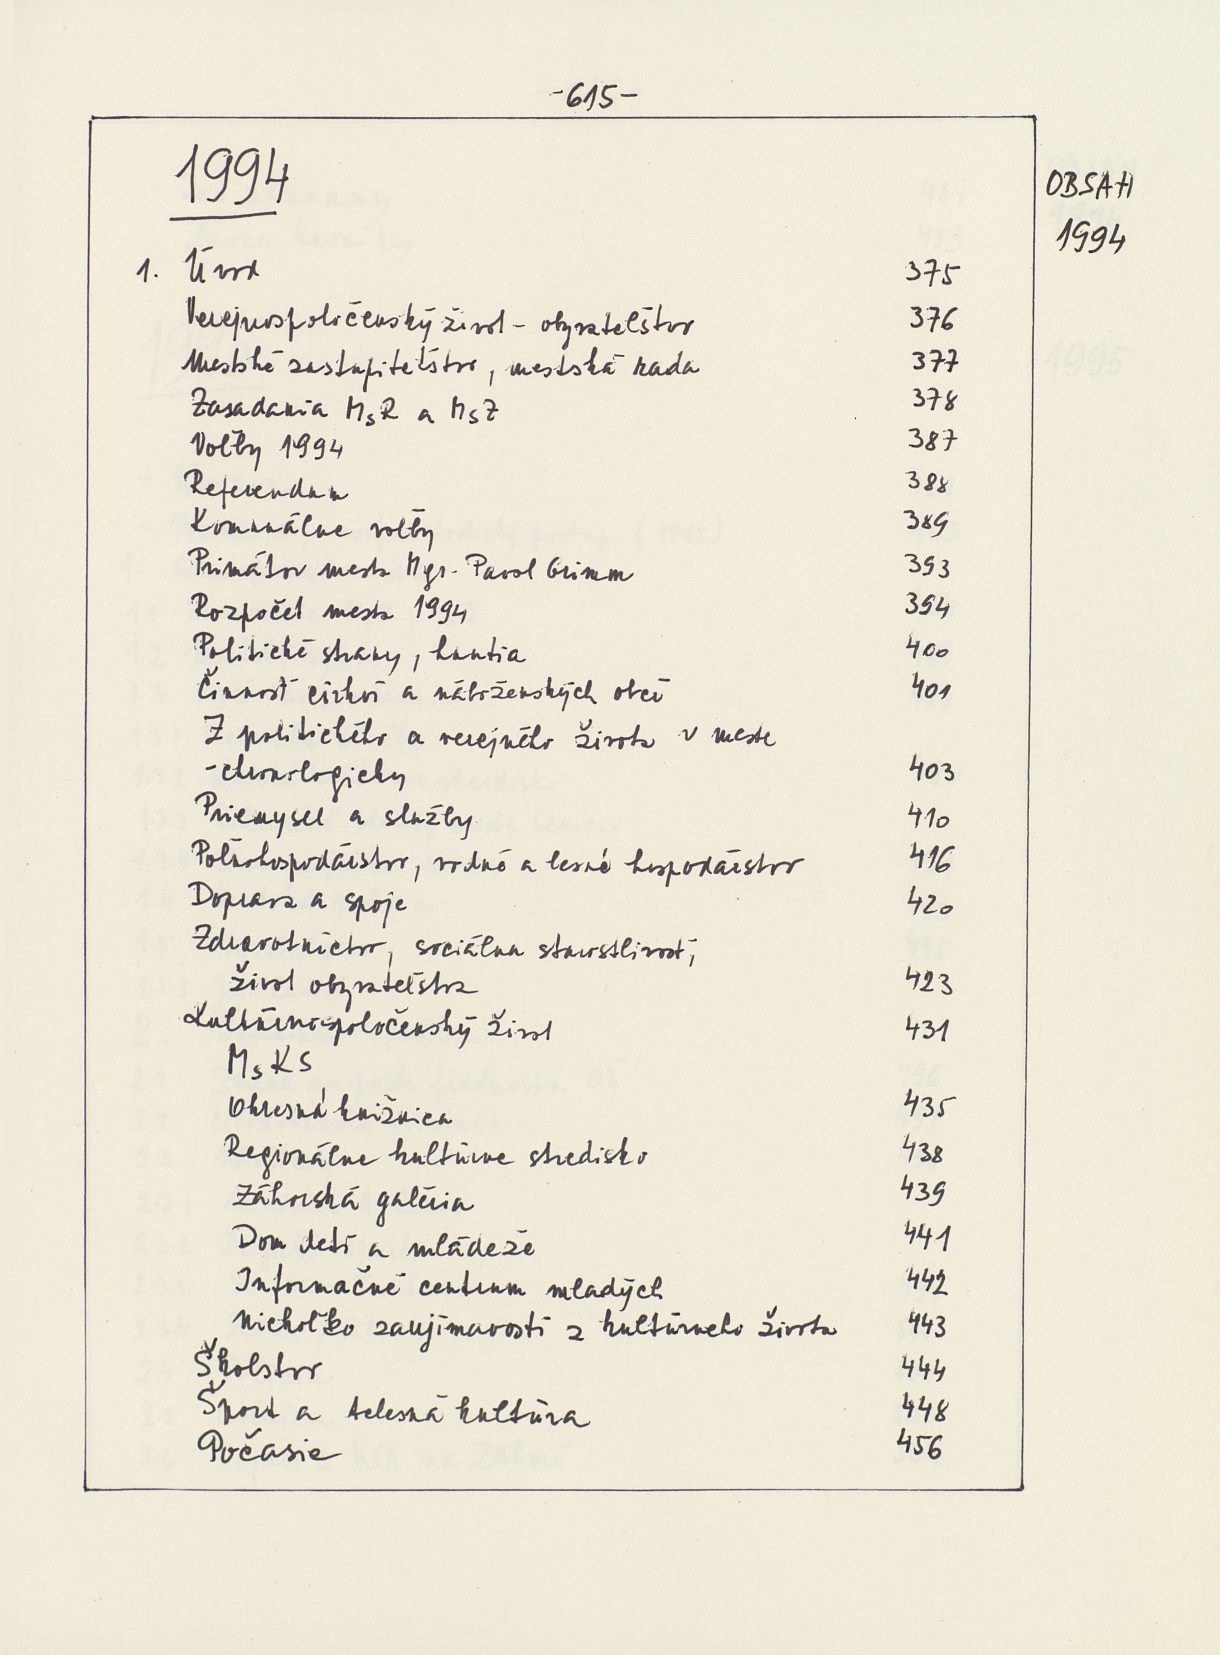 -615-
1994
OBSAH
1994
1. Úvod 375
Verejnospoločenský život - obyvateľstvo 376
Mestské zastupiteľstvo, mestská rada 377
Zasadania MsR a MsZ 378
Voľby 1994 387
Referendum 388
Komunálne voľby 389
Primátor mesta Mgr. Pavol Grimm 393
Rozpočet mesta 1994 394
Politické strany, hnutia 400
Činnosť cirkví a náboženských obcí 401
Z politického a verejného života v meste
-chronologicky 403
Priemysel a služby 410
Poľnohospodárstvo, vodné a lesné hospodárstvo 416
Doprava a spoje 420
Zdravotníctvo, sociálna starostlivosť,
život obyvateľstva 423
Kultúrnospoločenský život 431
MsKS
Okresná knižnica 435
Regionálne kultúrne stredisko 438
Záhorská galéria 439
Dom detí a mládeže 441
Informačné centrum mladých 442
Niekoľko zaujímavostí z kultúrneho života 443
Školstvo 444
Šport a telesná kultúra 448
Počasie 456